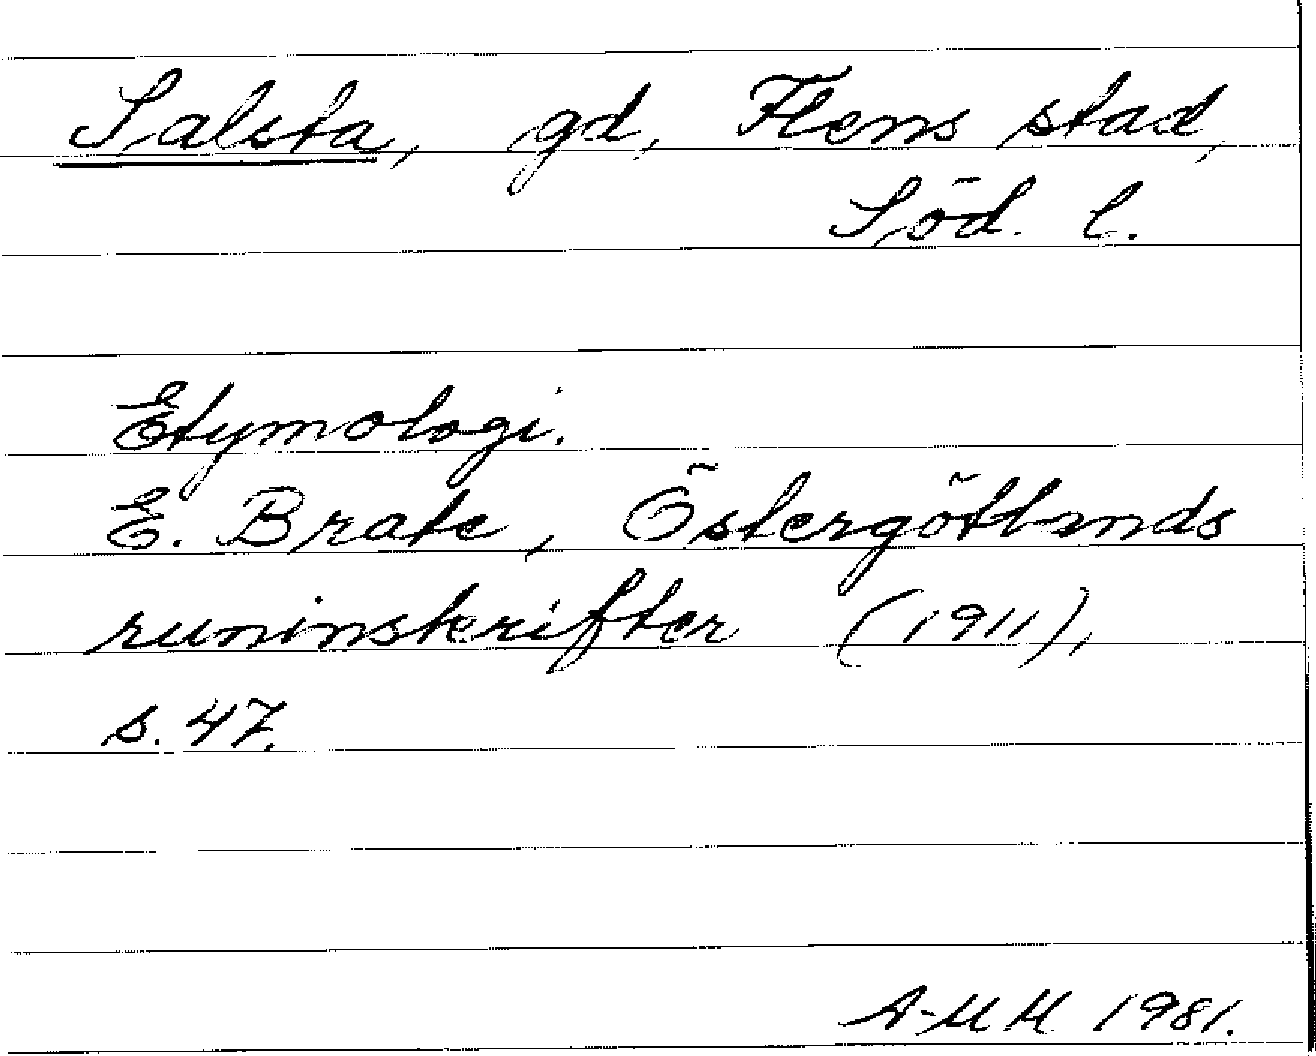 Salsta, gd, Flens stad,
Söd. l.
Etymologi.
E. Brate, Östergötlands
runinskrifter (1911),
s. 47.
A-MM 1981.